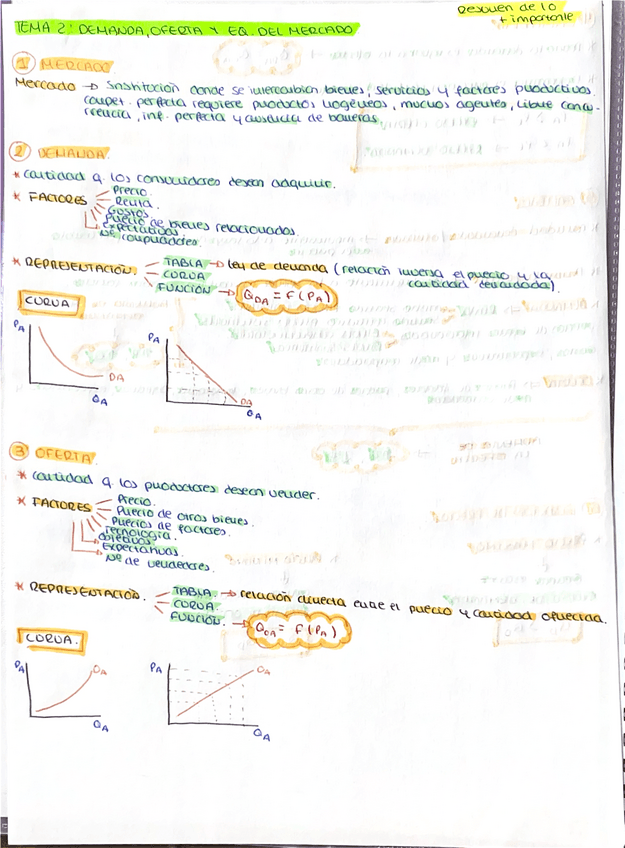 Resumen de lo
+ importante
TEMA 2: DEMANDA, OFERTA Y EQ. DEL MERCADO
1 MERCADO.
Mercado → Institución donde se intercambian bienes, servicios y factores productivos.
compet. perfecta requiere productos homogéneos, muchos agentes, libre concu-
rrencia, inf. perfecta y ausencia de barreras.
2 DEMANDA.
* cantidad q los consumidores desean adquirir.
* FACTORES
Precio.
Renta.
Gustos.
Precio de bienes relacionados.
Expectativas
Nº compradores.
* REPRESENTACIÓN.
TABLA → ley de demanda (relación inversa el precio y la
cantidad demandada).
CURVA
FUNCIÓN → QDA = F(PA)
CURVA
PA
DA
QA
PA
DA
QA
3 OFERTA.
* cantidad q los productores desean vender.
* FACTORES
Precio.
Precio de otros bienes.
Precios de factores.
Tecnología.
Objetivos.
Expectativas.
Nº de vendedores.
* REPRESENTACIÓN.
TABLA → relación directa entre el precio y cantidad ofrecida.
CURVA
FUNCIÓN. → QOA = F(PA)
CURVA.
PA
OA
QA
PA
OA
QA